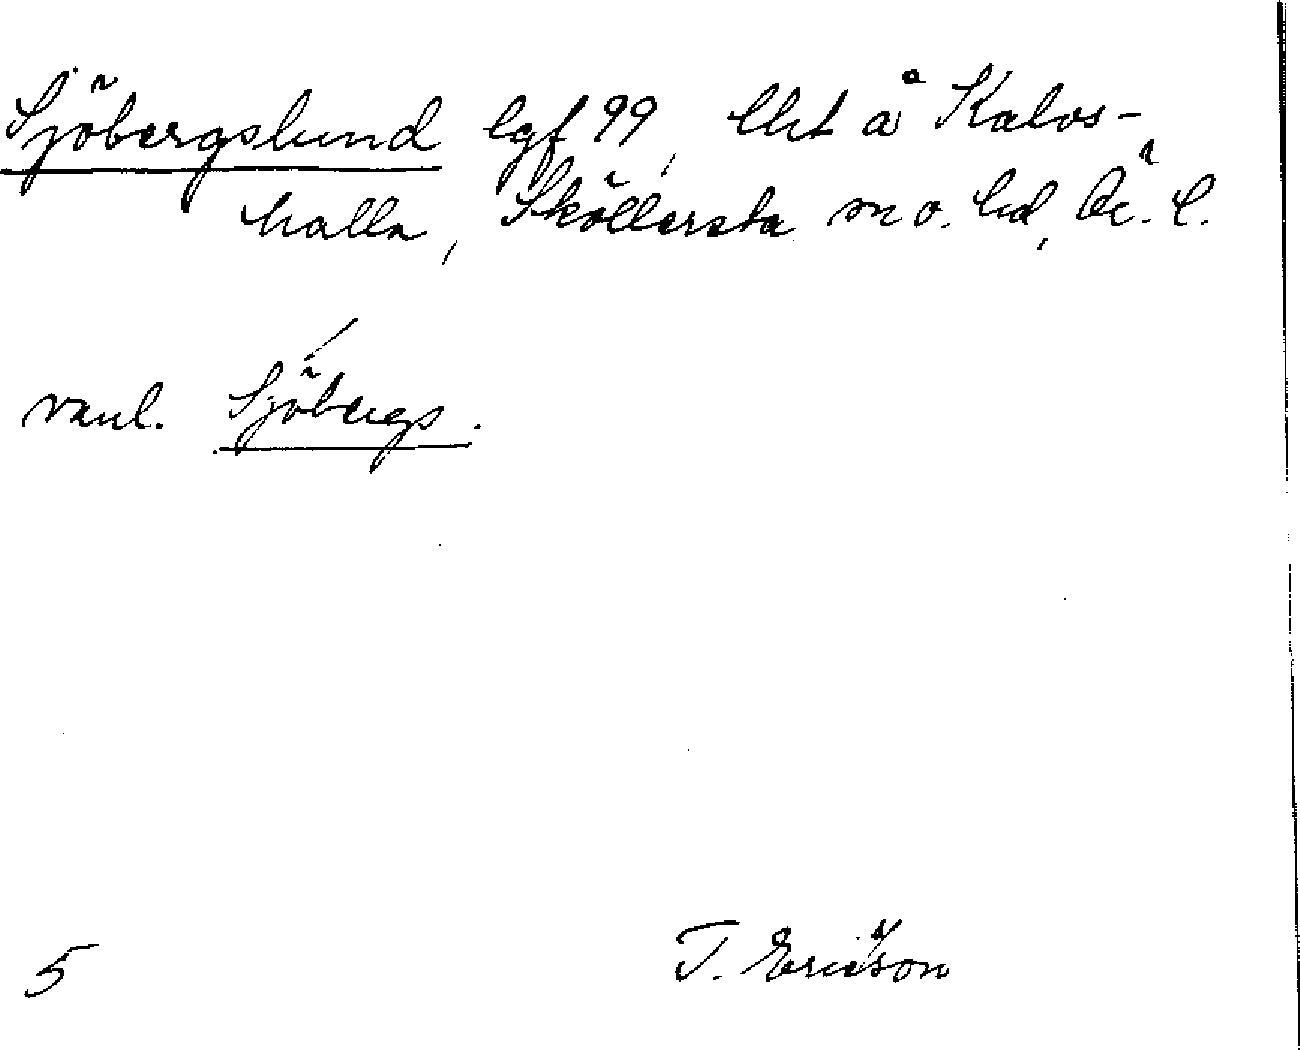 Sjöbergslund lgf 99, lht å Kalvs-
halla, Sköllersta sn o. hd, Ö. l.
vanl. Sjöbergs.
5
T. Ericsson